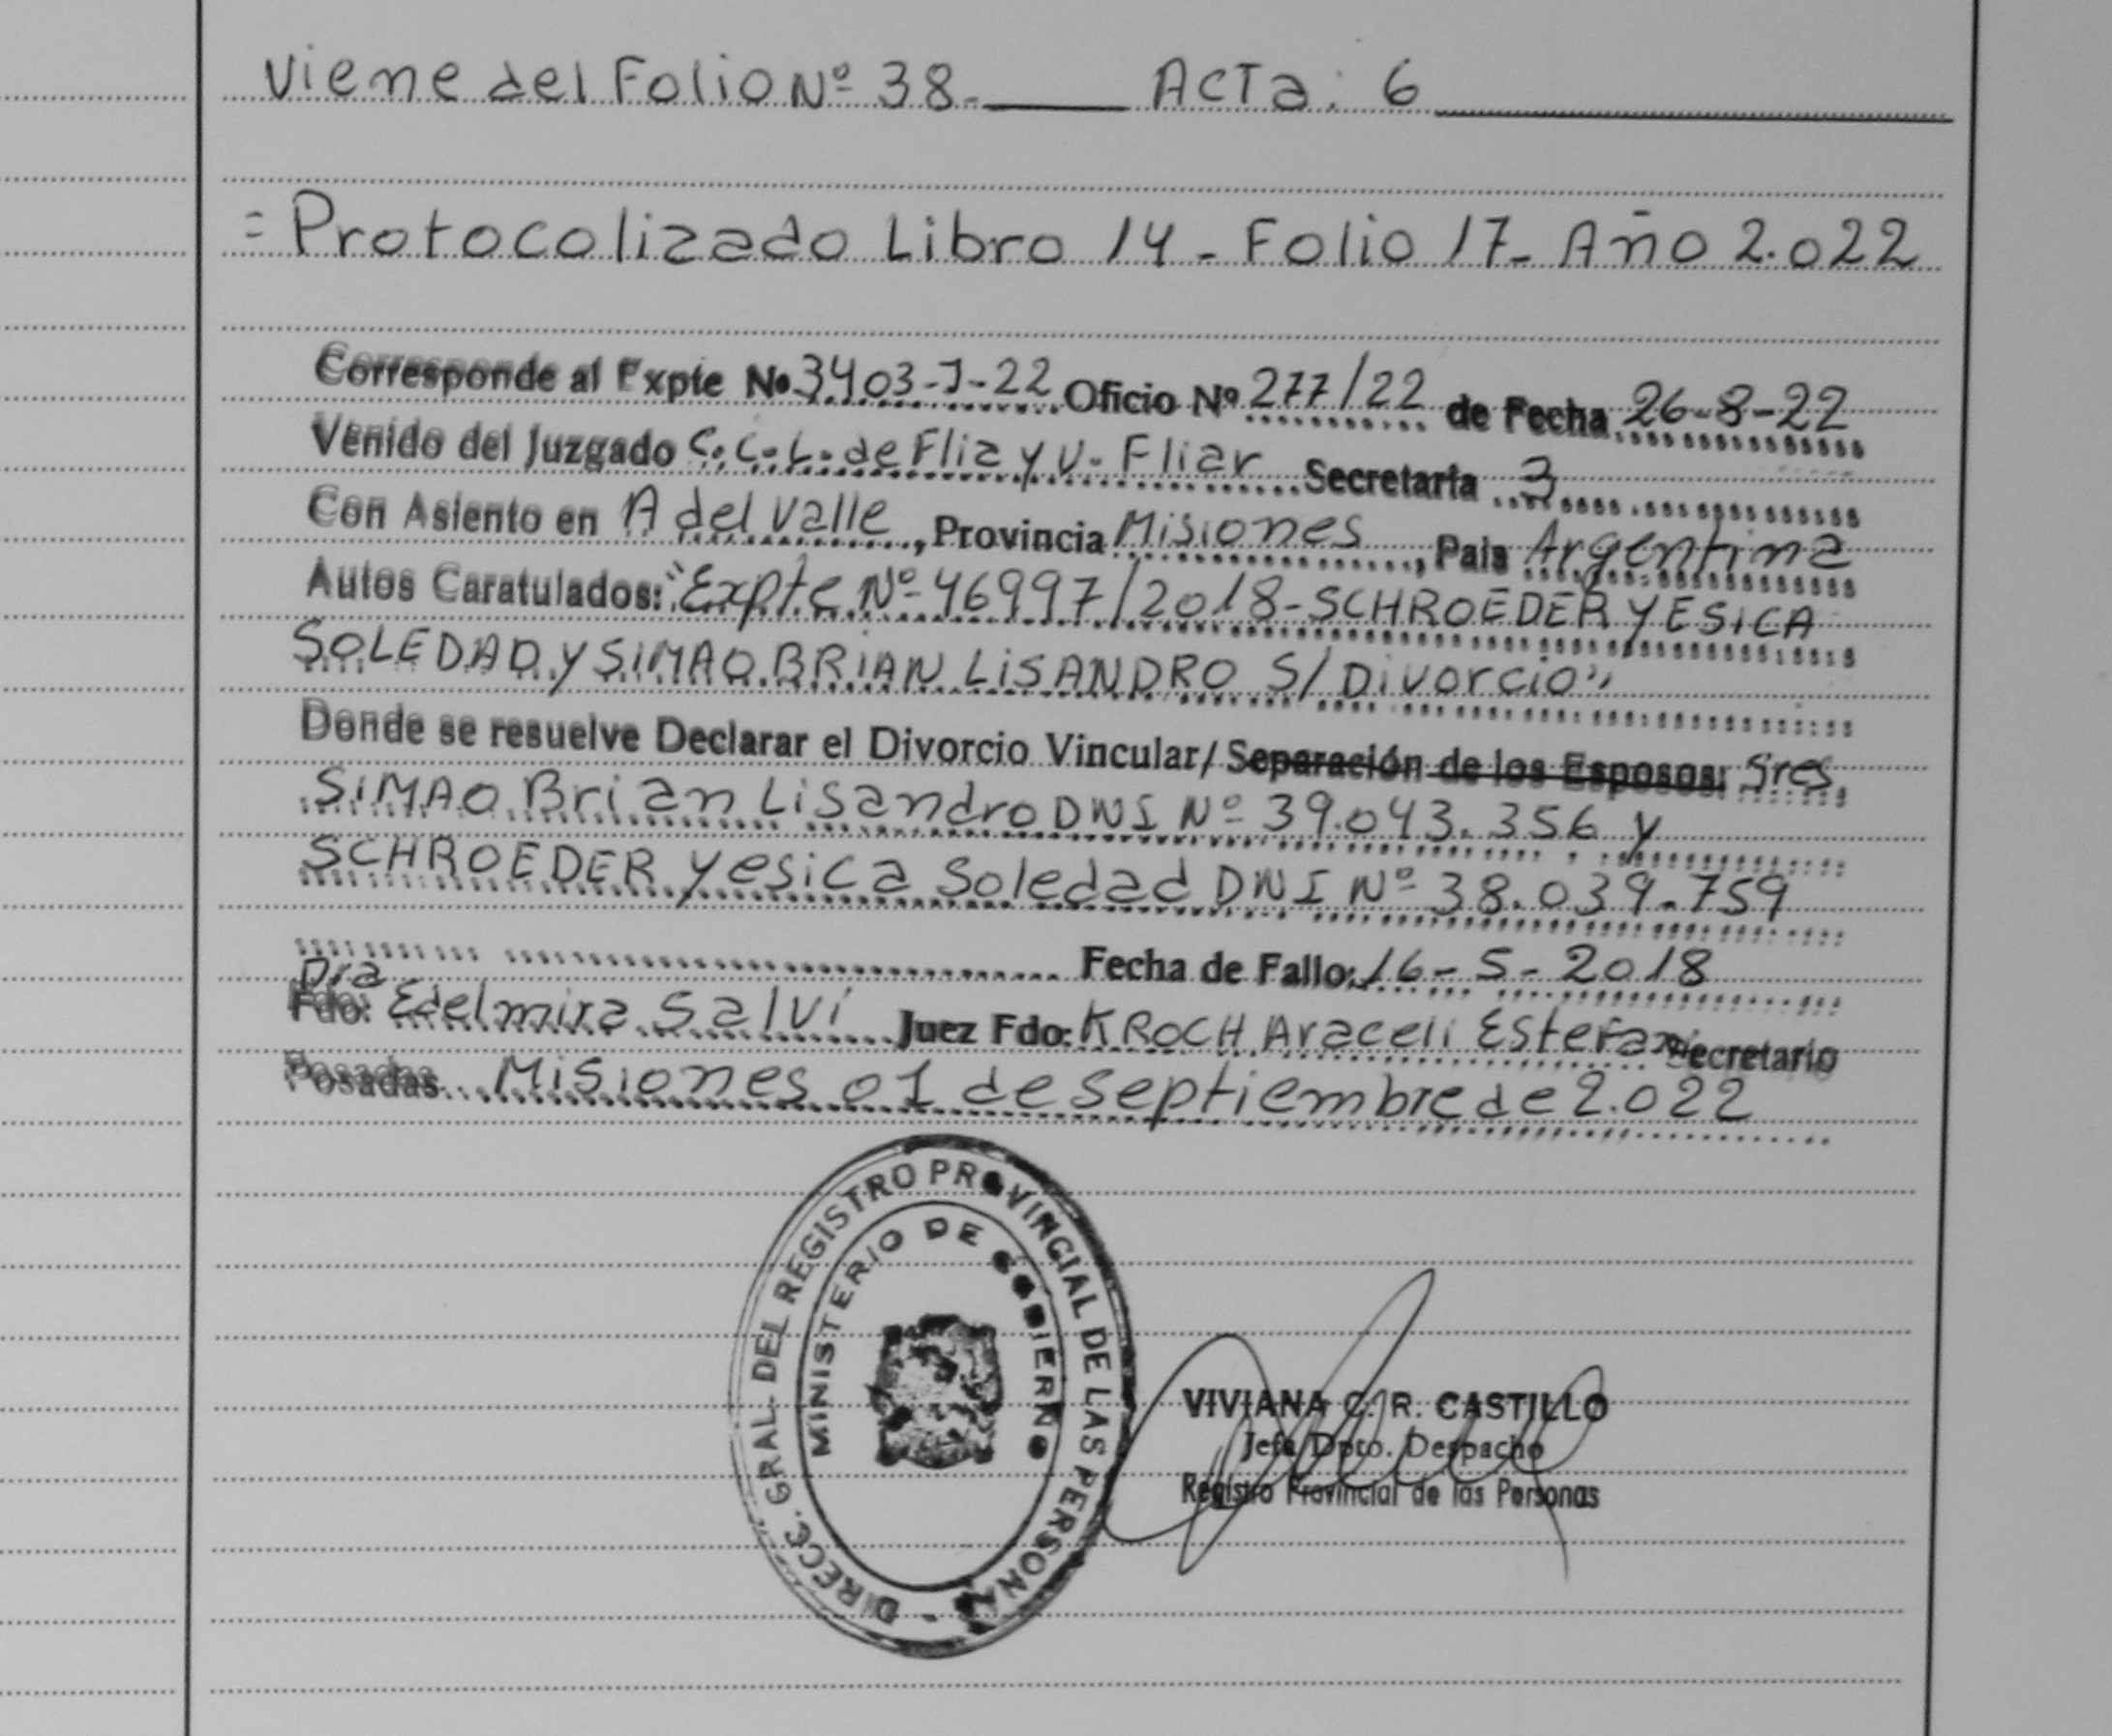 Viene del Folio Nº 38. Acta: 6
= Protocolizado Libro 14 - Folio 17 - Año 2.022
Corresponde al Expte Nº 3403-J-22 Oficio Nº 277/22 de Fecha 26-8-22
Venido del Juzgado C.C.L. de Flia y V. Fliar Secretaria 3
Con Asiento en A del Valle, Provincia Misiones, Pais Argentina
Autos Caratulados: "Expte Nº 46997/2018 - SCHROEDER YESICA
SOLEDAD y SIMAO BRIAN LISANDRO S/ Divorcio"
Donde se resuelve Declarar el Divorcio Vincular/ Separación de los Esposos: Sres
SIMAO Brian Lisandro DNI Nº 39.043.356 y
SCHROEDER Yesica Soledad DNI Nº 38.039.759
Fecha de Fallo: 16-5-2018
Dra
Fdo: Edelmira Salvi Juez Fdo: KROCH Araceli Estefani Secretario
Posadas Misiones 01 de septiembre de 2.022
DIRECC. GRAL. DEL REGISTRO PROVINCIAL DE LAS PERSONAS
MINISTERIO DE GOBIERNO
VIVIANA C. R. CASTILLO
Jefa Dpto. Despacho
Registro Provincial de las Personas